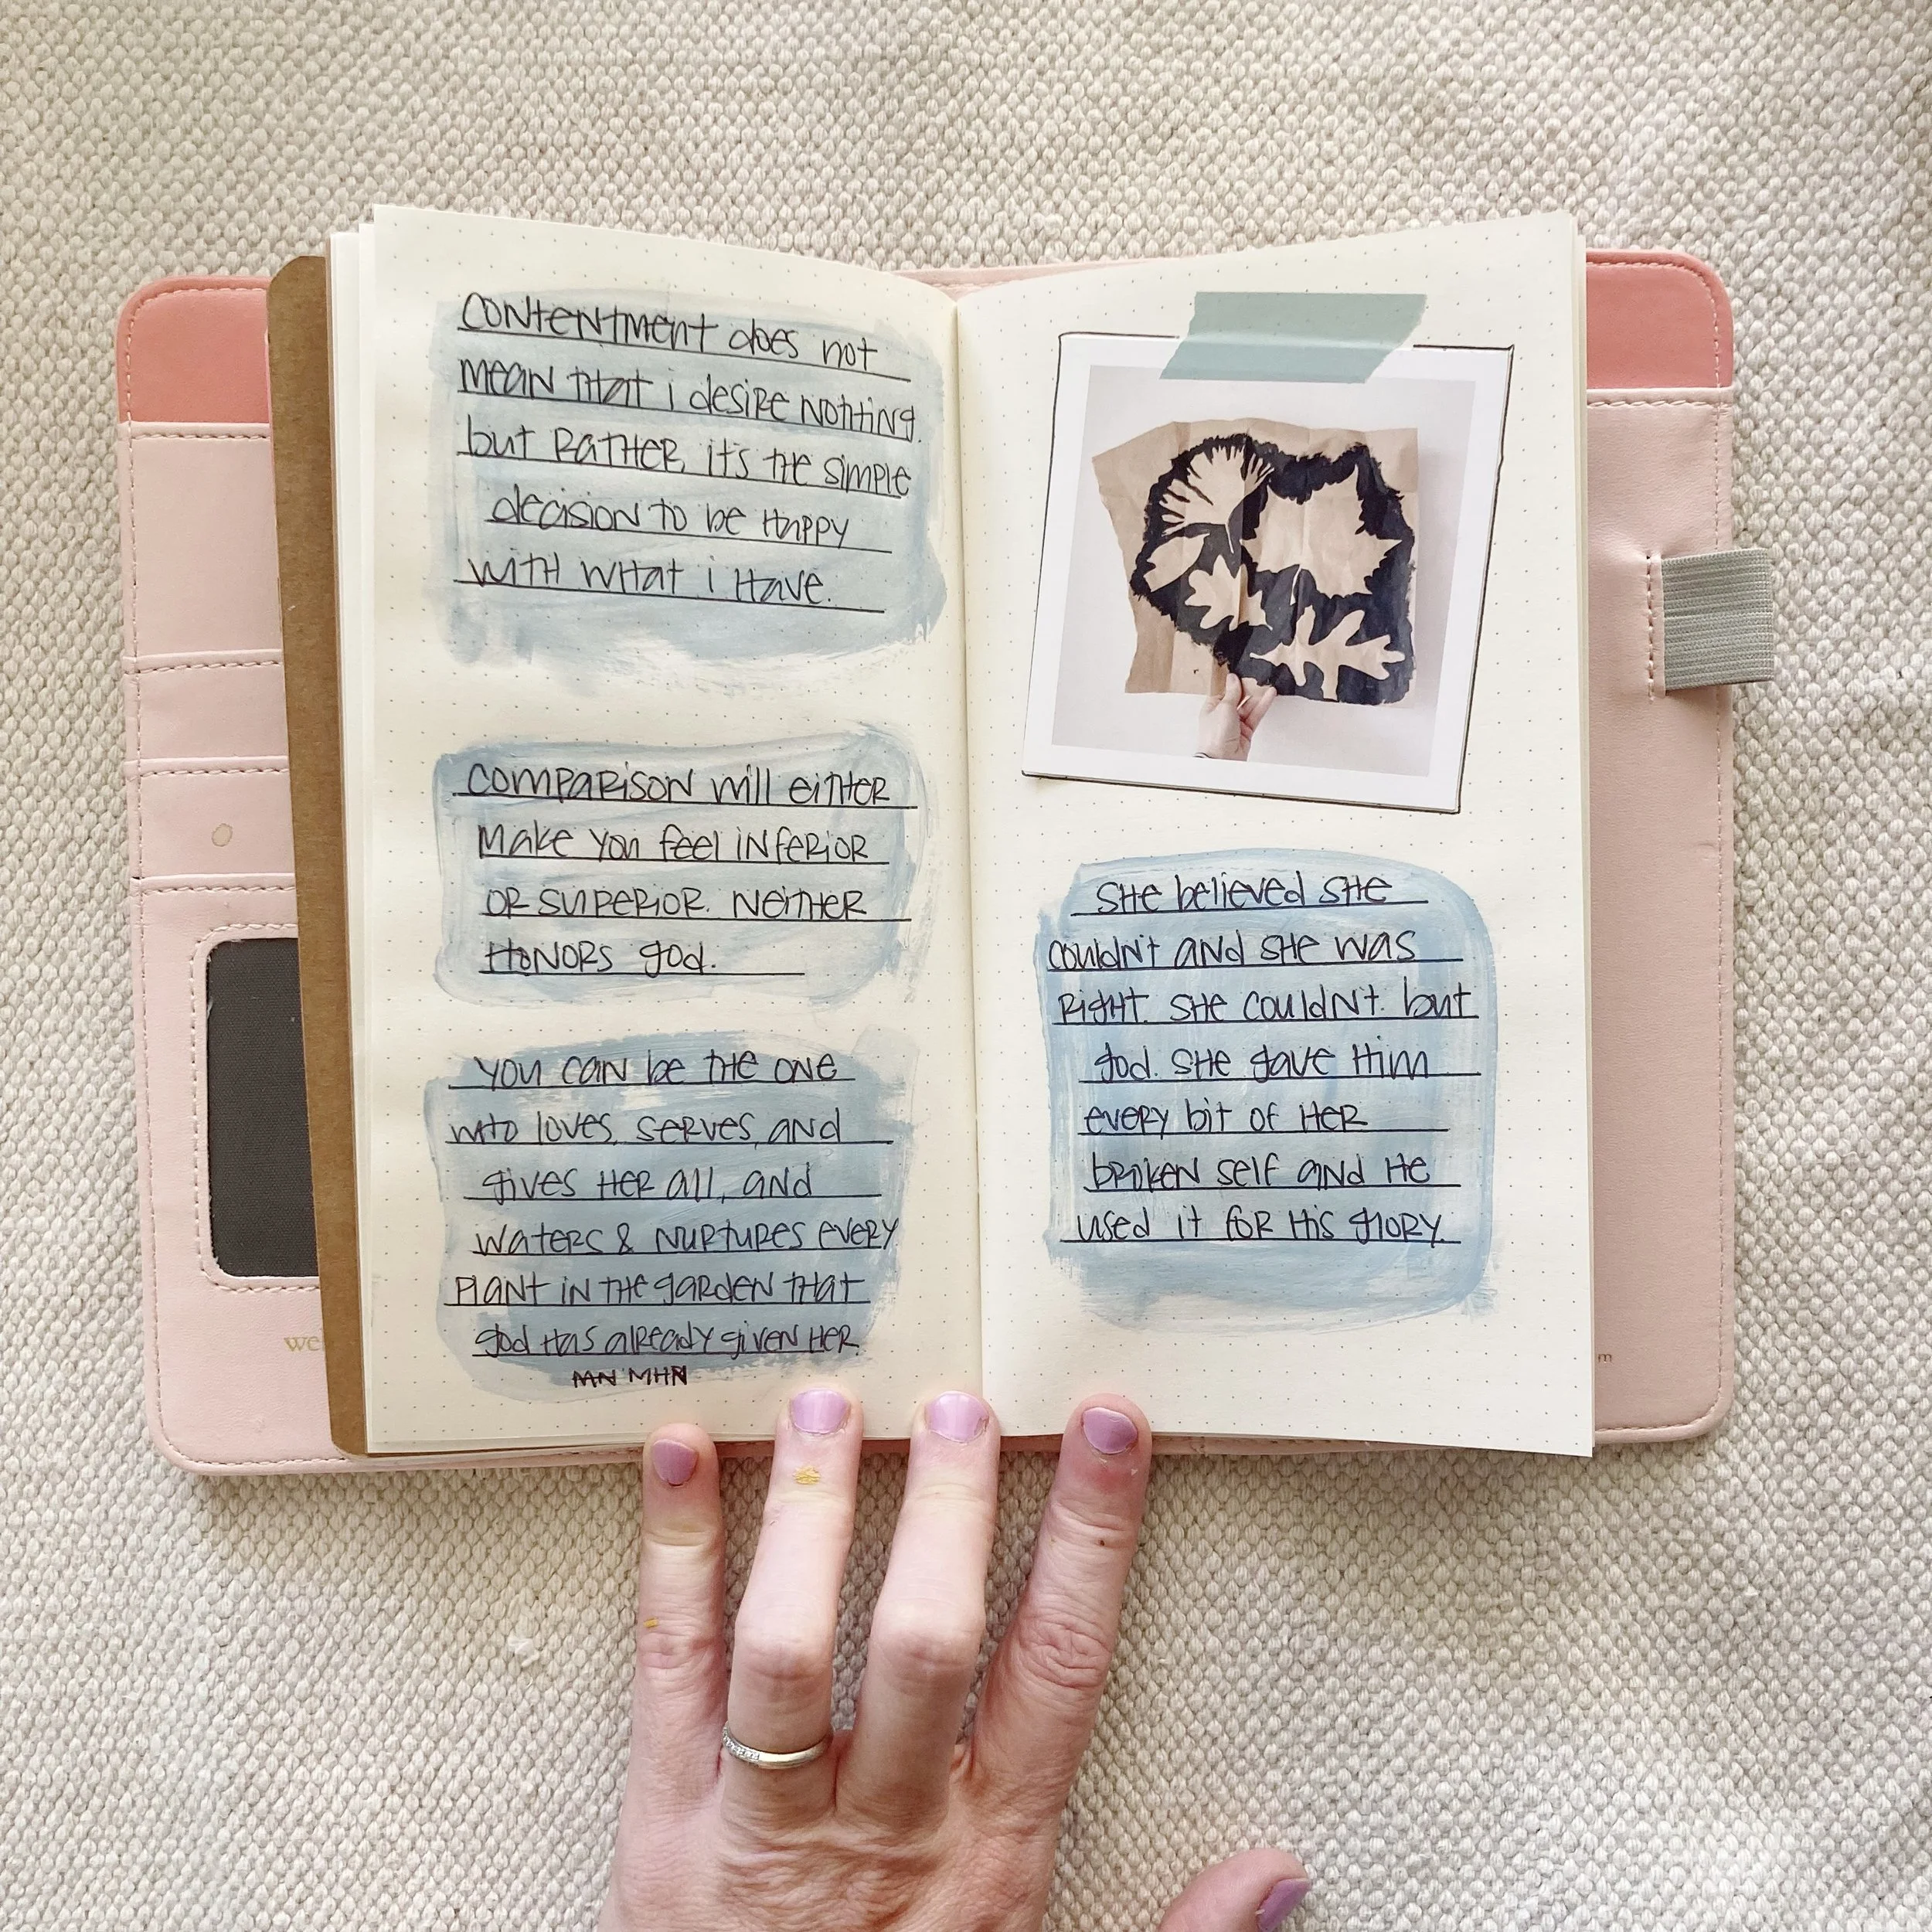 CONTENTMENT does not
MEAN THAT i desiRE NOTHING.
but RATHER, it's THE simple
decision TO be HAPPY
WITH WHAT i HAVE.
COMPARISON will eiTHER
MAke you feel iNFERiOR
OR SUPERIOR. NEITHER
HONORS god.
you CAN be THE ONE
WHO loves, SERVES, AND
gives HER All, AND
WATERS & NURTURES EVERY
PlANT iN THE GARDEN THAT
god HAS AlREADY giveN HER.
SHE believed SHE
couldN't AND SHE WAS
RigHT. SHE couldN't. but
god. SHE gave Him
EVERY bit of HER
broken self AND He
used it foR His gloRY.
we
m